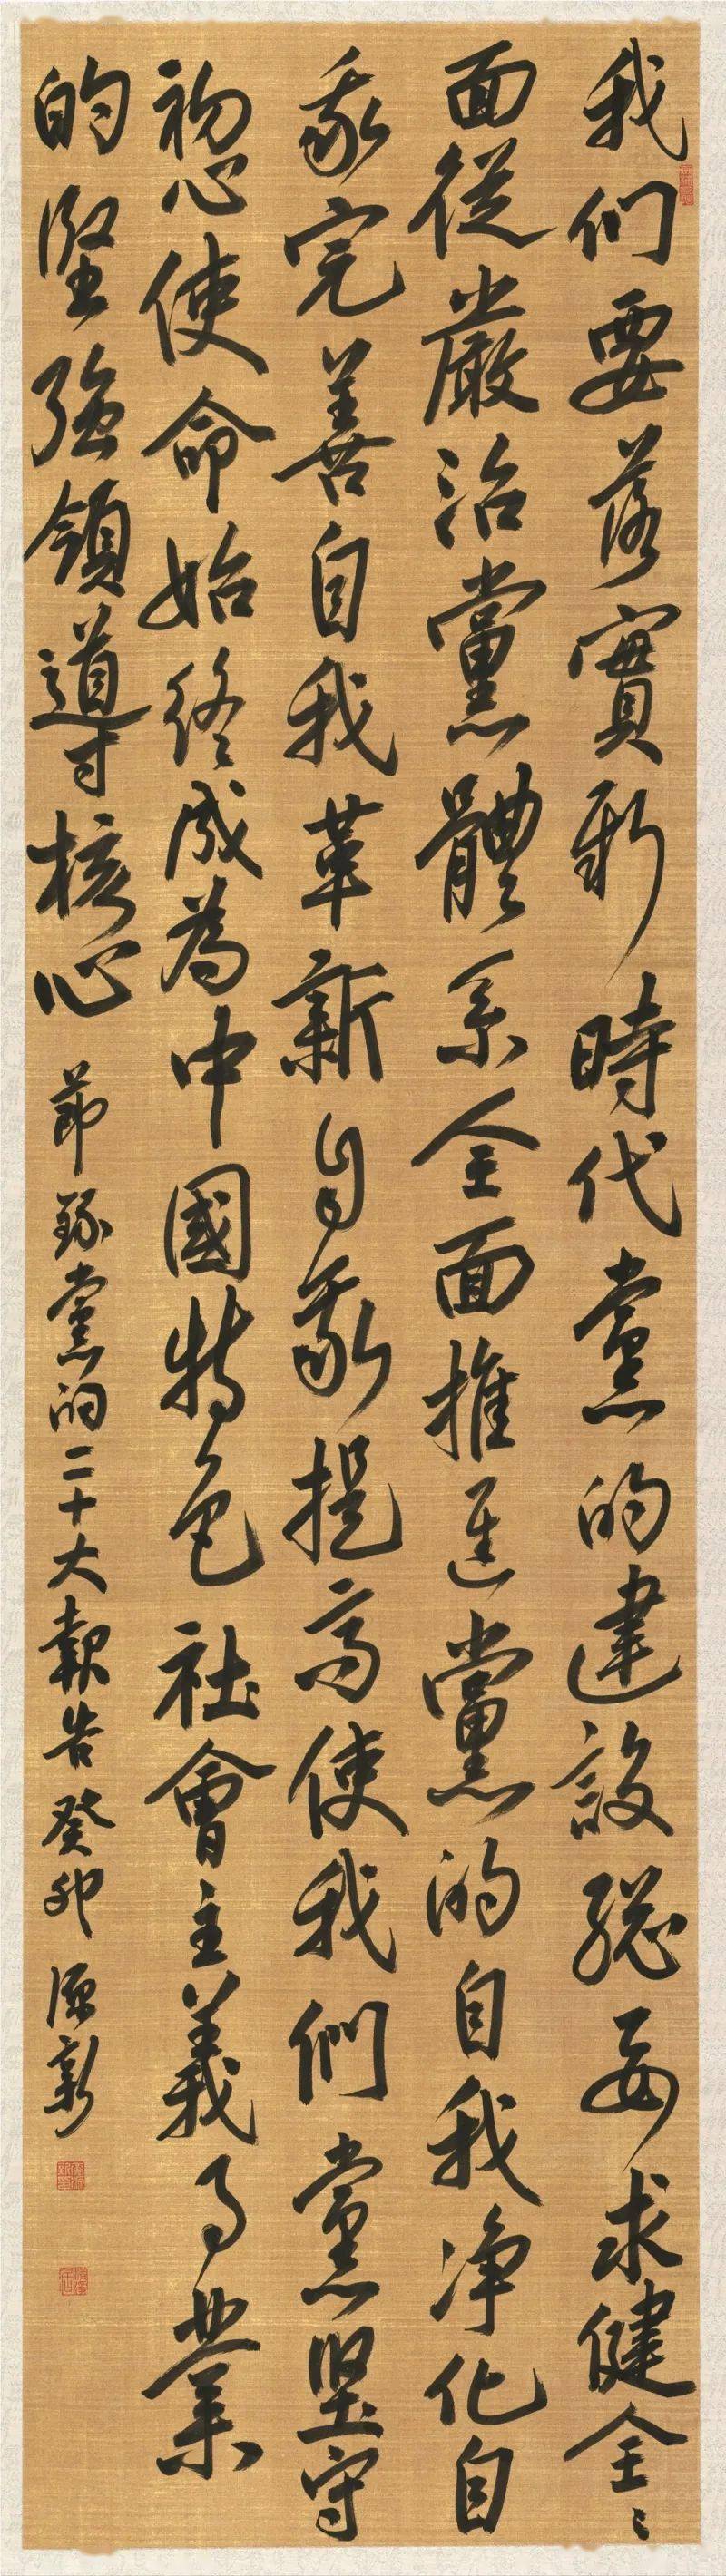 我们要落實新時代黨的建設總要求健全〻
面從嚴治黨體系全面推進黨的自我净化自
我完善自我革新自我提高使我們黨堅守
初心使命始終成為中國特色社會主義事業
的堅強領導核心 節録黨的二十大報告 癸卯